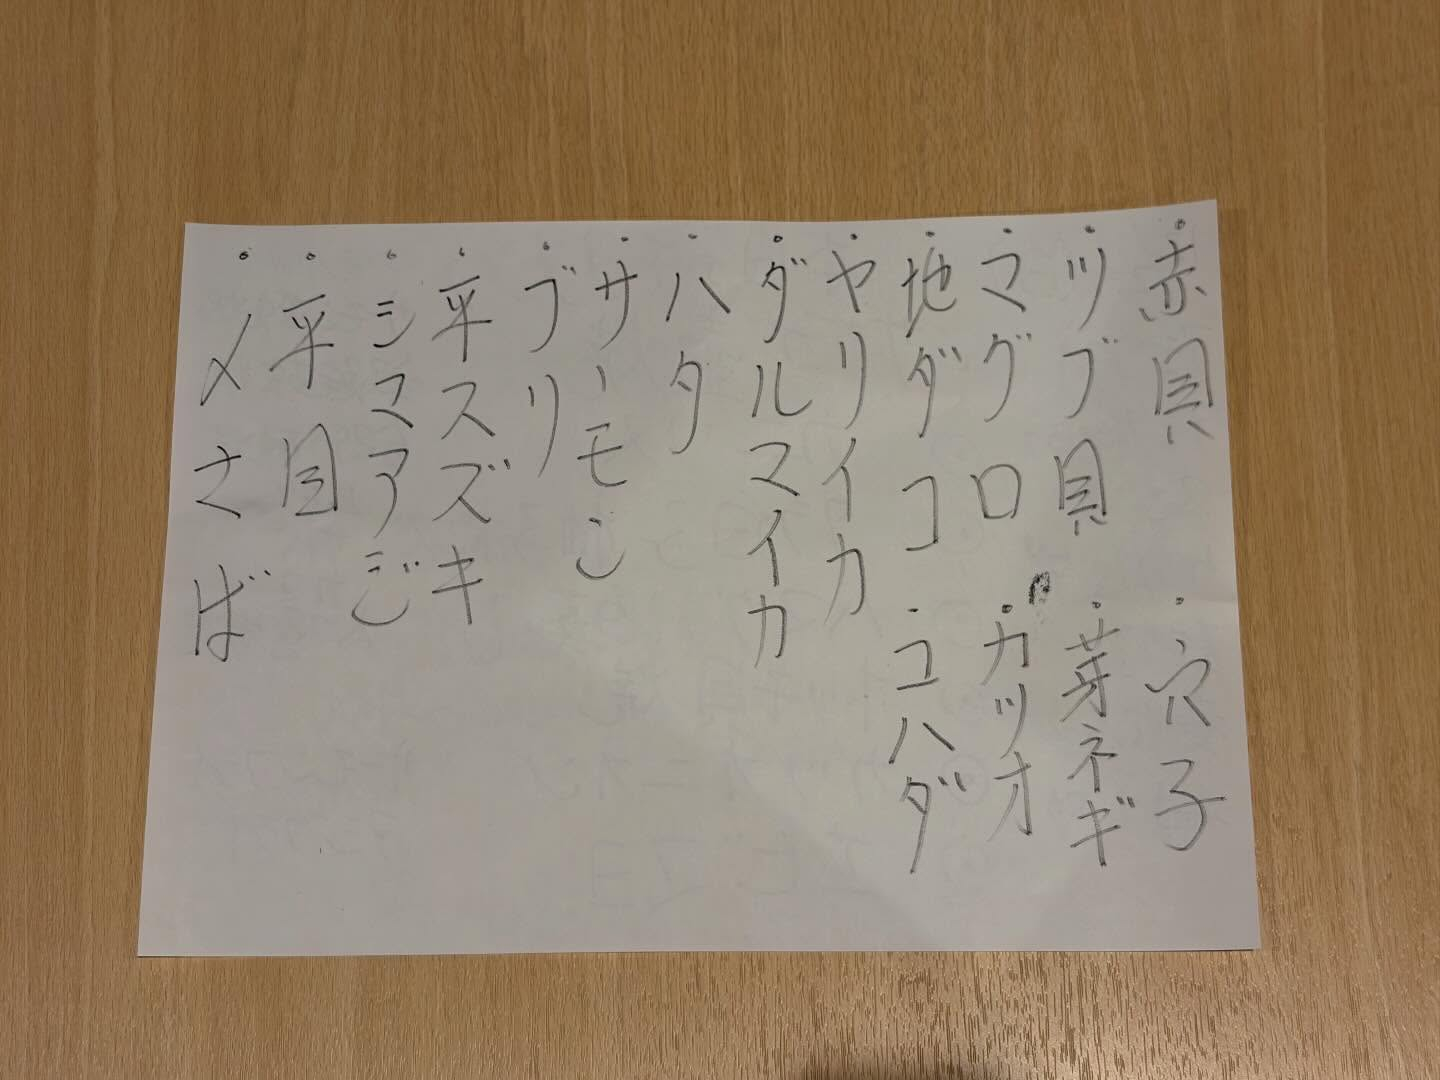 ・赤貝
・ツブ貝
・マグロ
・地ダコ
・ヤリイカ
・ダルマイカ
・ハタ
・サーモン
・ブリ
・平スズキ
・シマアジ
・平目
・〆さば
・穴子
・芽ネギ
・カツオ
・コハダ